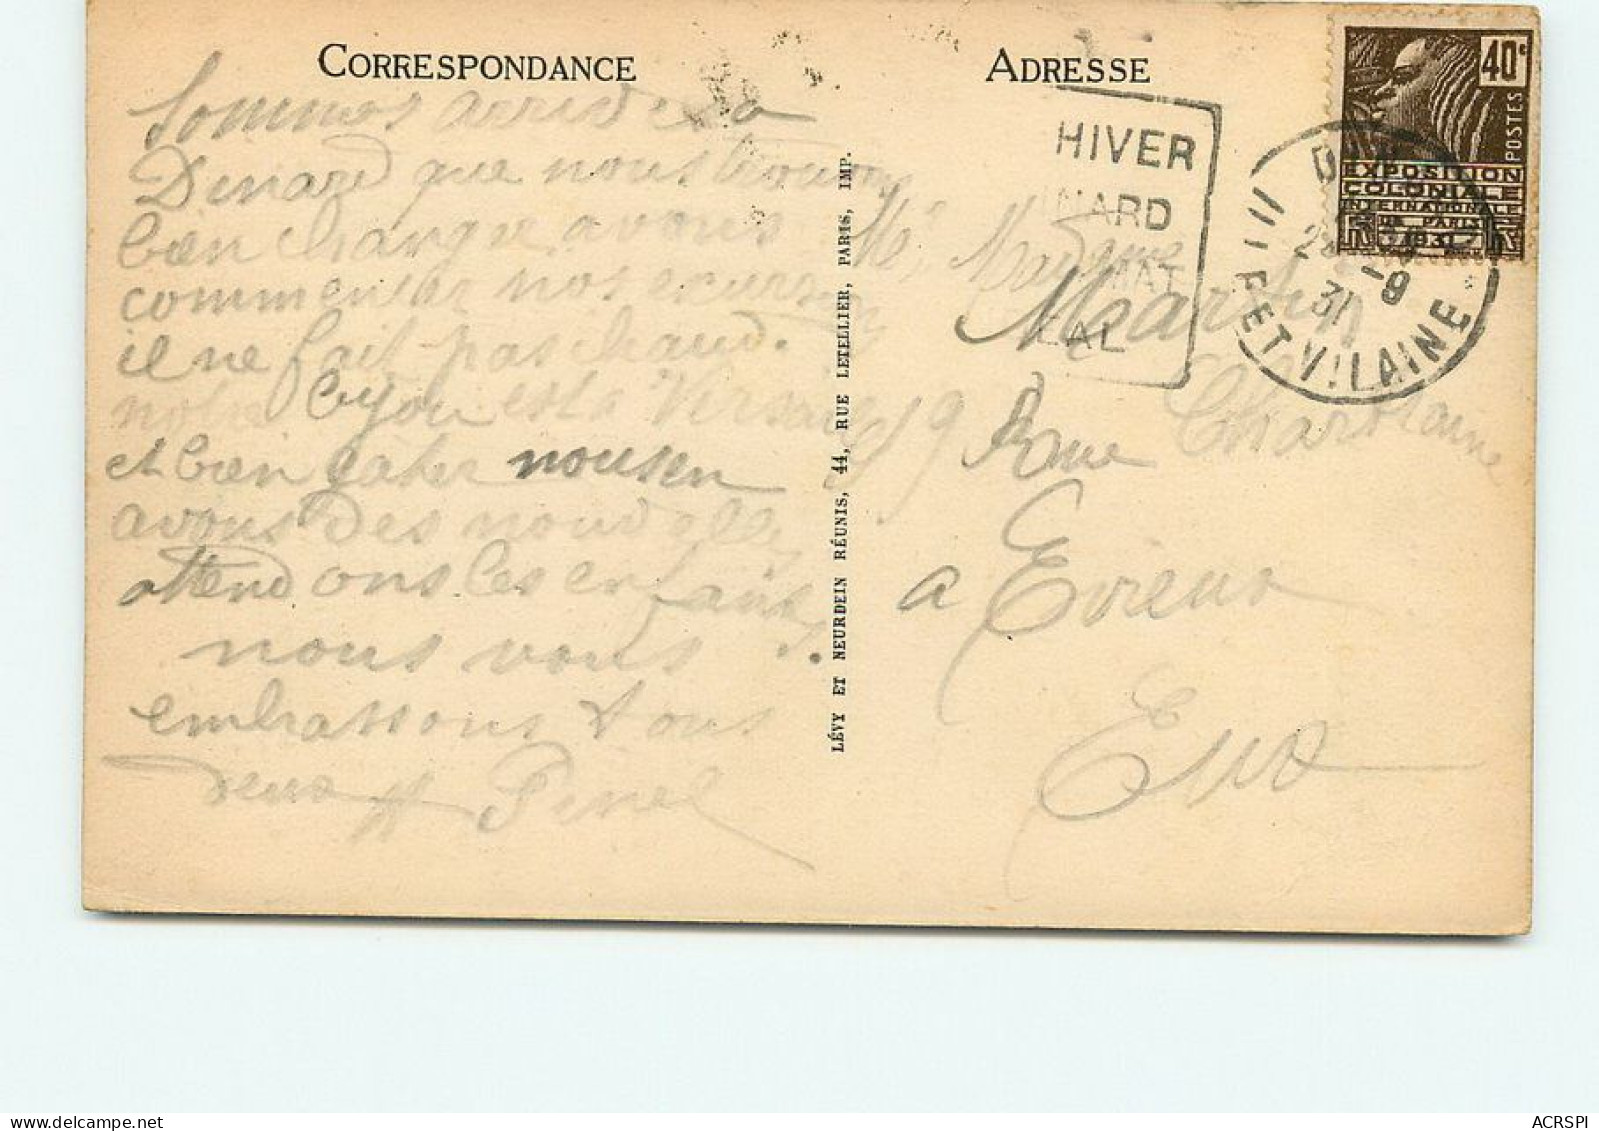 CORRESPONDANCE
Sommes arrivés a
Dinard que nous trouvons
bien changer avons
commencer nos excursion
il ne fait pas chaud.
notre est a Versailles
et bien gater nous en
avons des nouvelles
attendons les enfants
nous vous
embrassons tous
deux H Pinel
LÉVY ET NEURDEIN RÉUNIS, 44, RUE LETELLIER, PARIS, IMP.
ADRESSE
HIVER
INARD
MAT
EAL
40c
POSTES
EXPOSITION
COLONIALE
INTERNATIONALE
PARIS
1931
-9
31
ILLE ET VILAINE
Mr, Madame
Martin
9 Rue Chartraine
a Evreux
Eure
ACRSPI